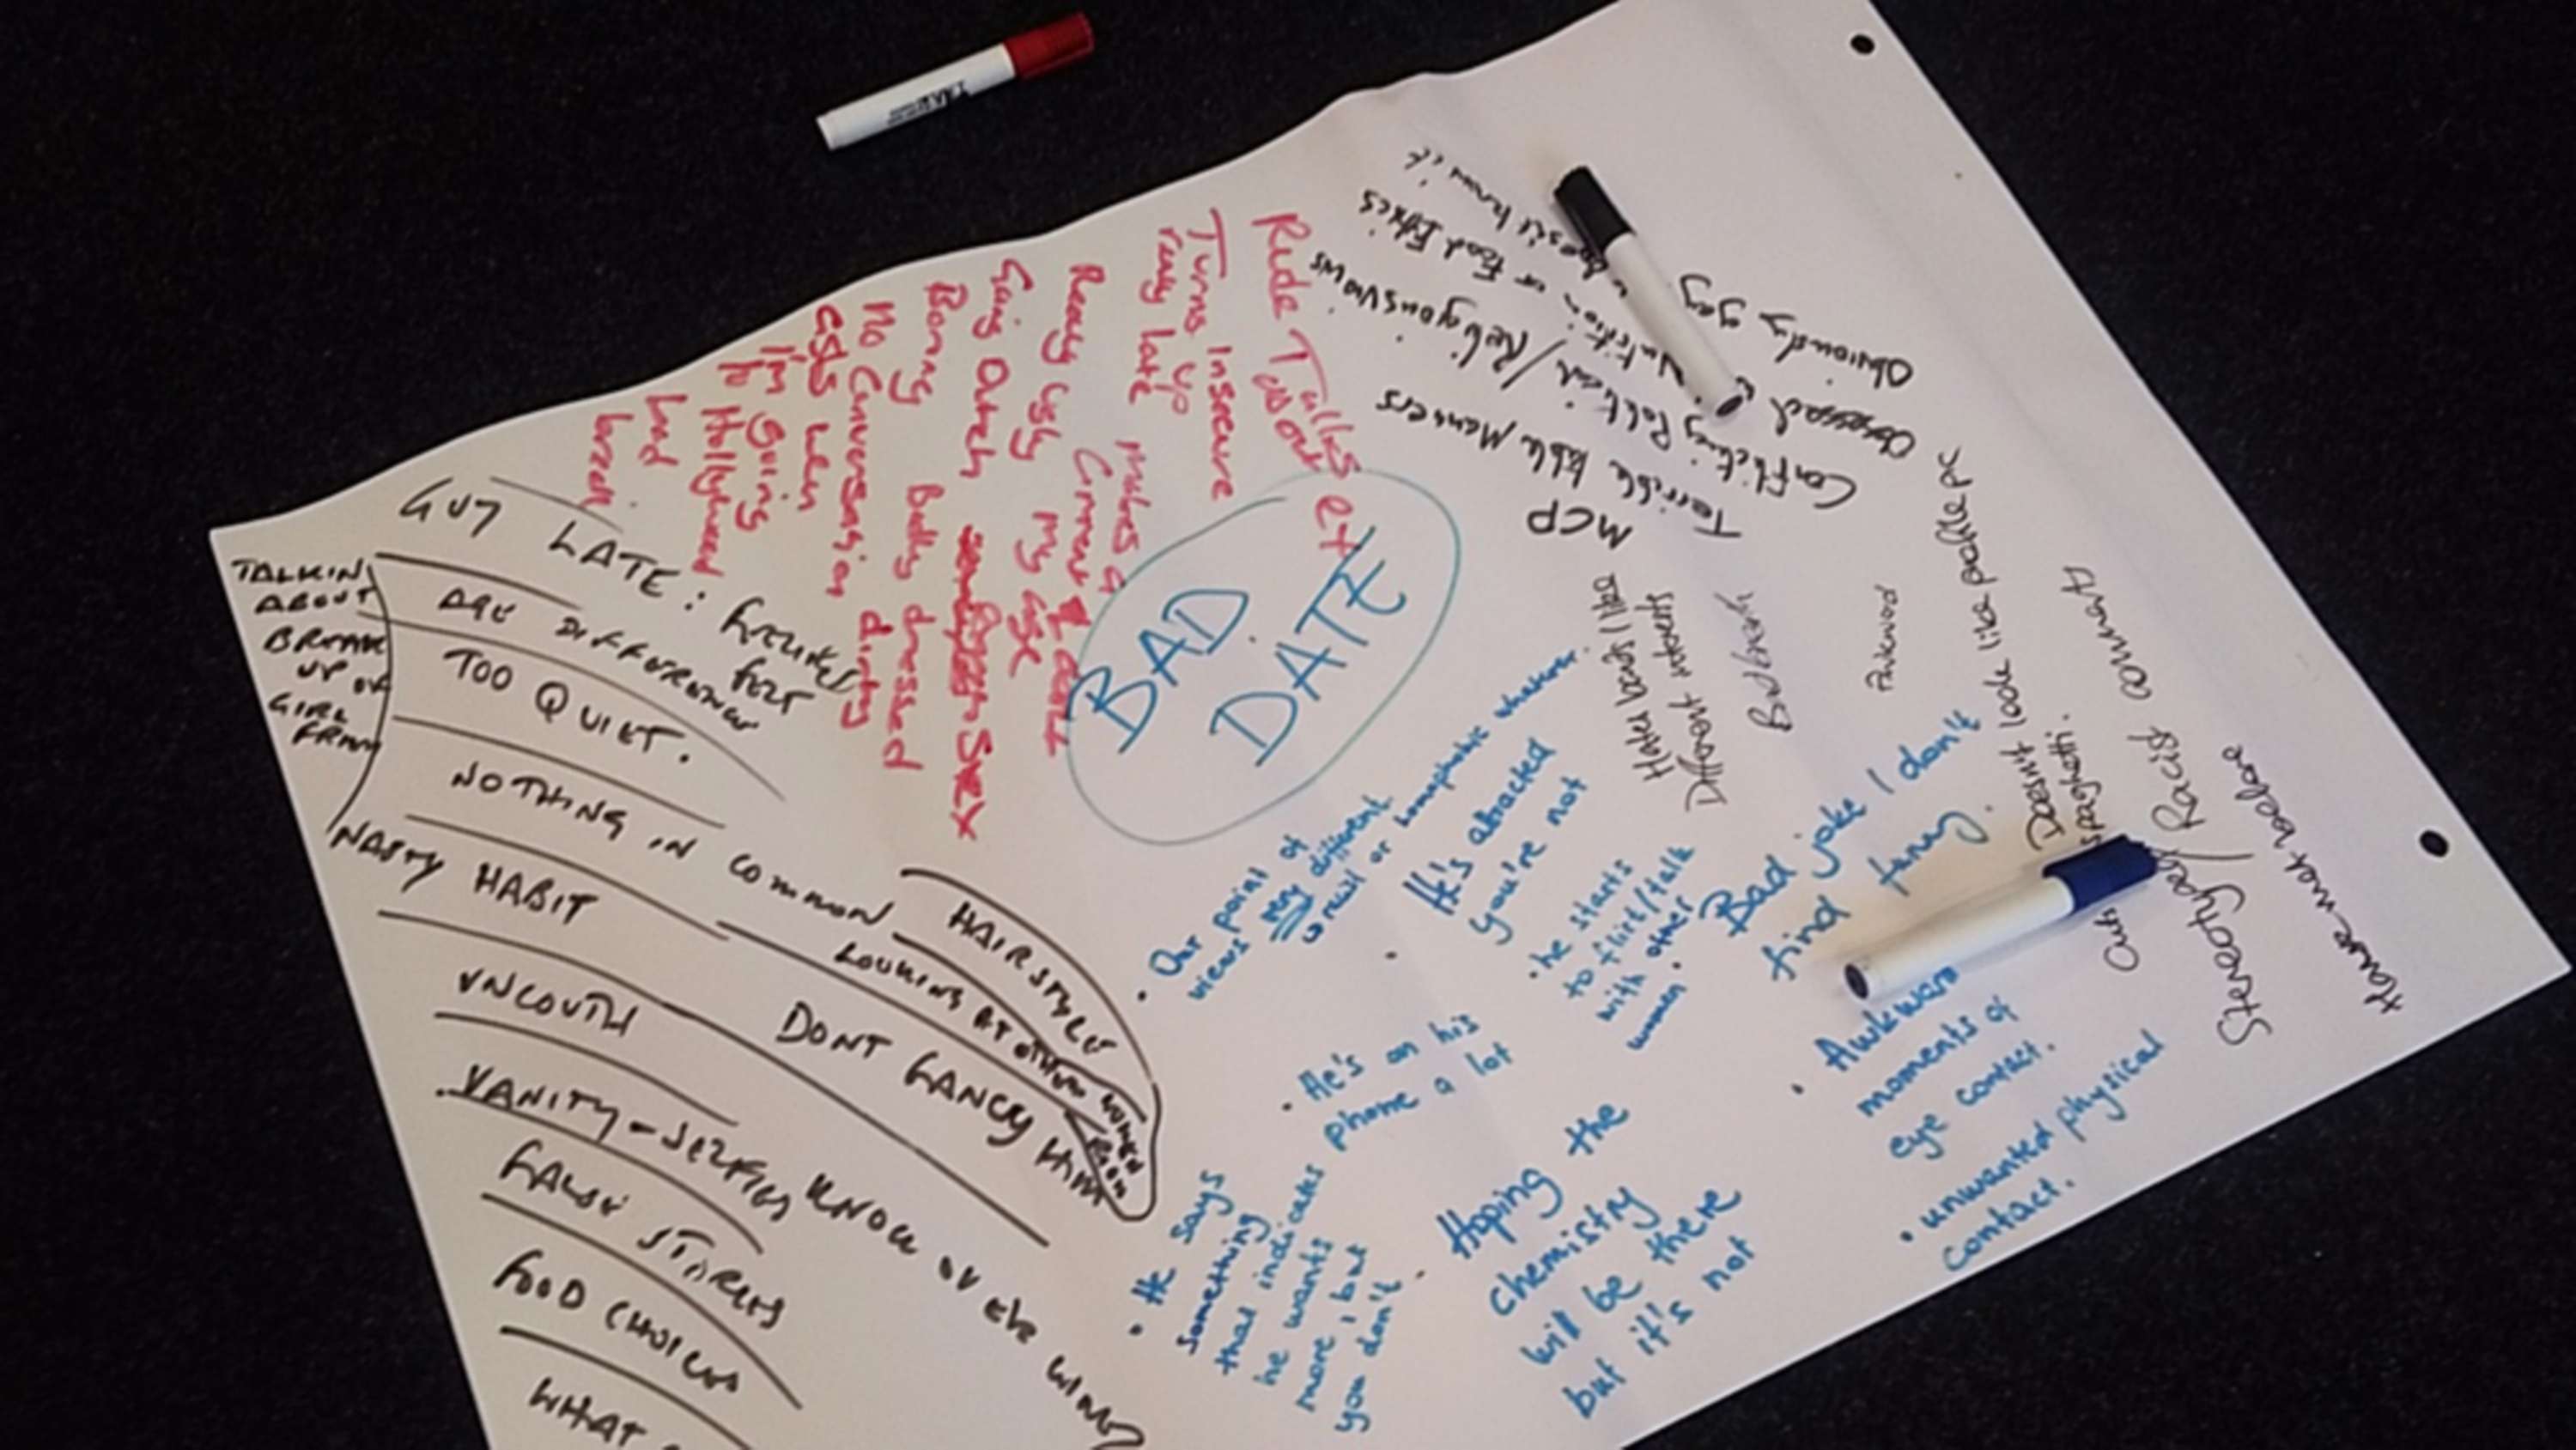 BAD
DATE
Rude Talks
Turns Insecure
up
very late
Really ugly
Going Dutch
Boring
No Conversation
when
I'm Going
to Hollyhead
bad
Makes a
my
Badly dressed
dirty
Sex
Obviously gay
Obsessed
Nutrition or Food Ethics
doesn't know it
Conflicting Political / Religious views
Terrible table Manners
MCP
Hates bands I like
Different interests
Bad breath
Awkward
Doesn't look like profile pic
Stereotypes / Racist comments
Have met before
GUY LATE: EXCUSES
AGE DIFFERENCE
TOO QUIET.
NOTHING IN COMMON
TALKIN
ABOUT
BREAK
UP OF
GIRL
FRIEND
NASTY HABIT
HAIRSTYLE
LOOKING AT OTHER WOMEN
DONT FANCY HIM
UNCOUTH
VANITY - SELFIES
KNOCK OVER WINE
FALSE STORIES
FOOD CHOICES
WHAT
• Our point of
views very different
• He's attracted
you're not
• he starts
to flirt/talk
with other
women
• Bad joke I don't
find funny.
• He's on his
phone a lot
• Awkward
moments of
eye contact.
• unwanted physical
contact.
• He says
something
that indicates
he wants
more, but
you don't
• Hoping the
chemistry
will be there
but it's not